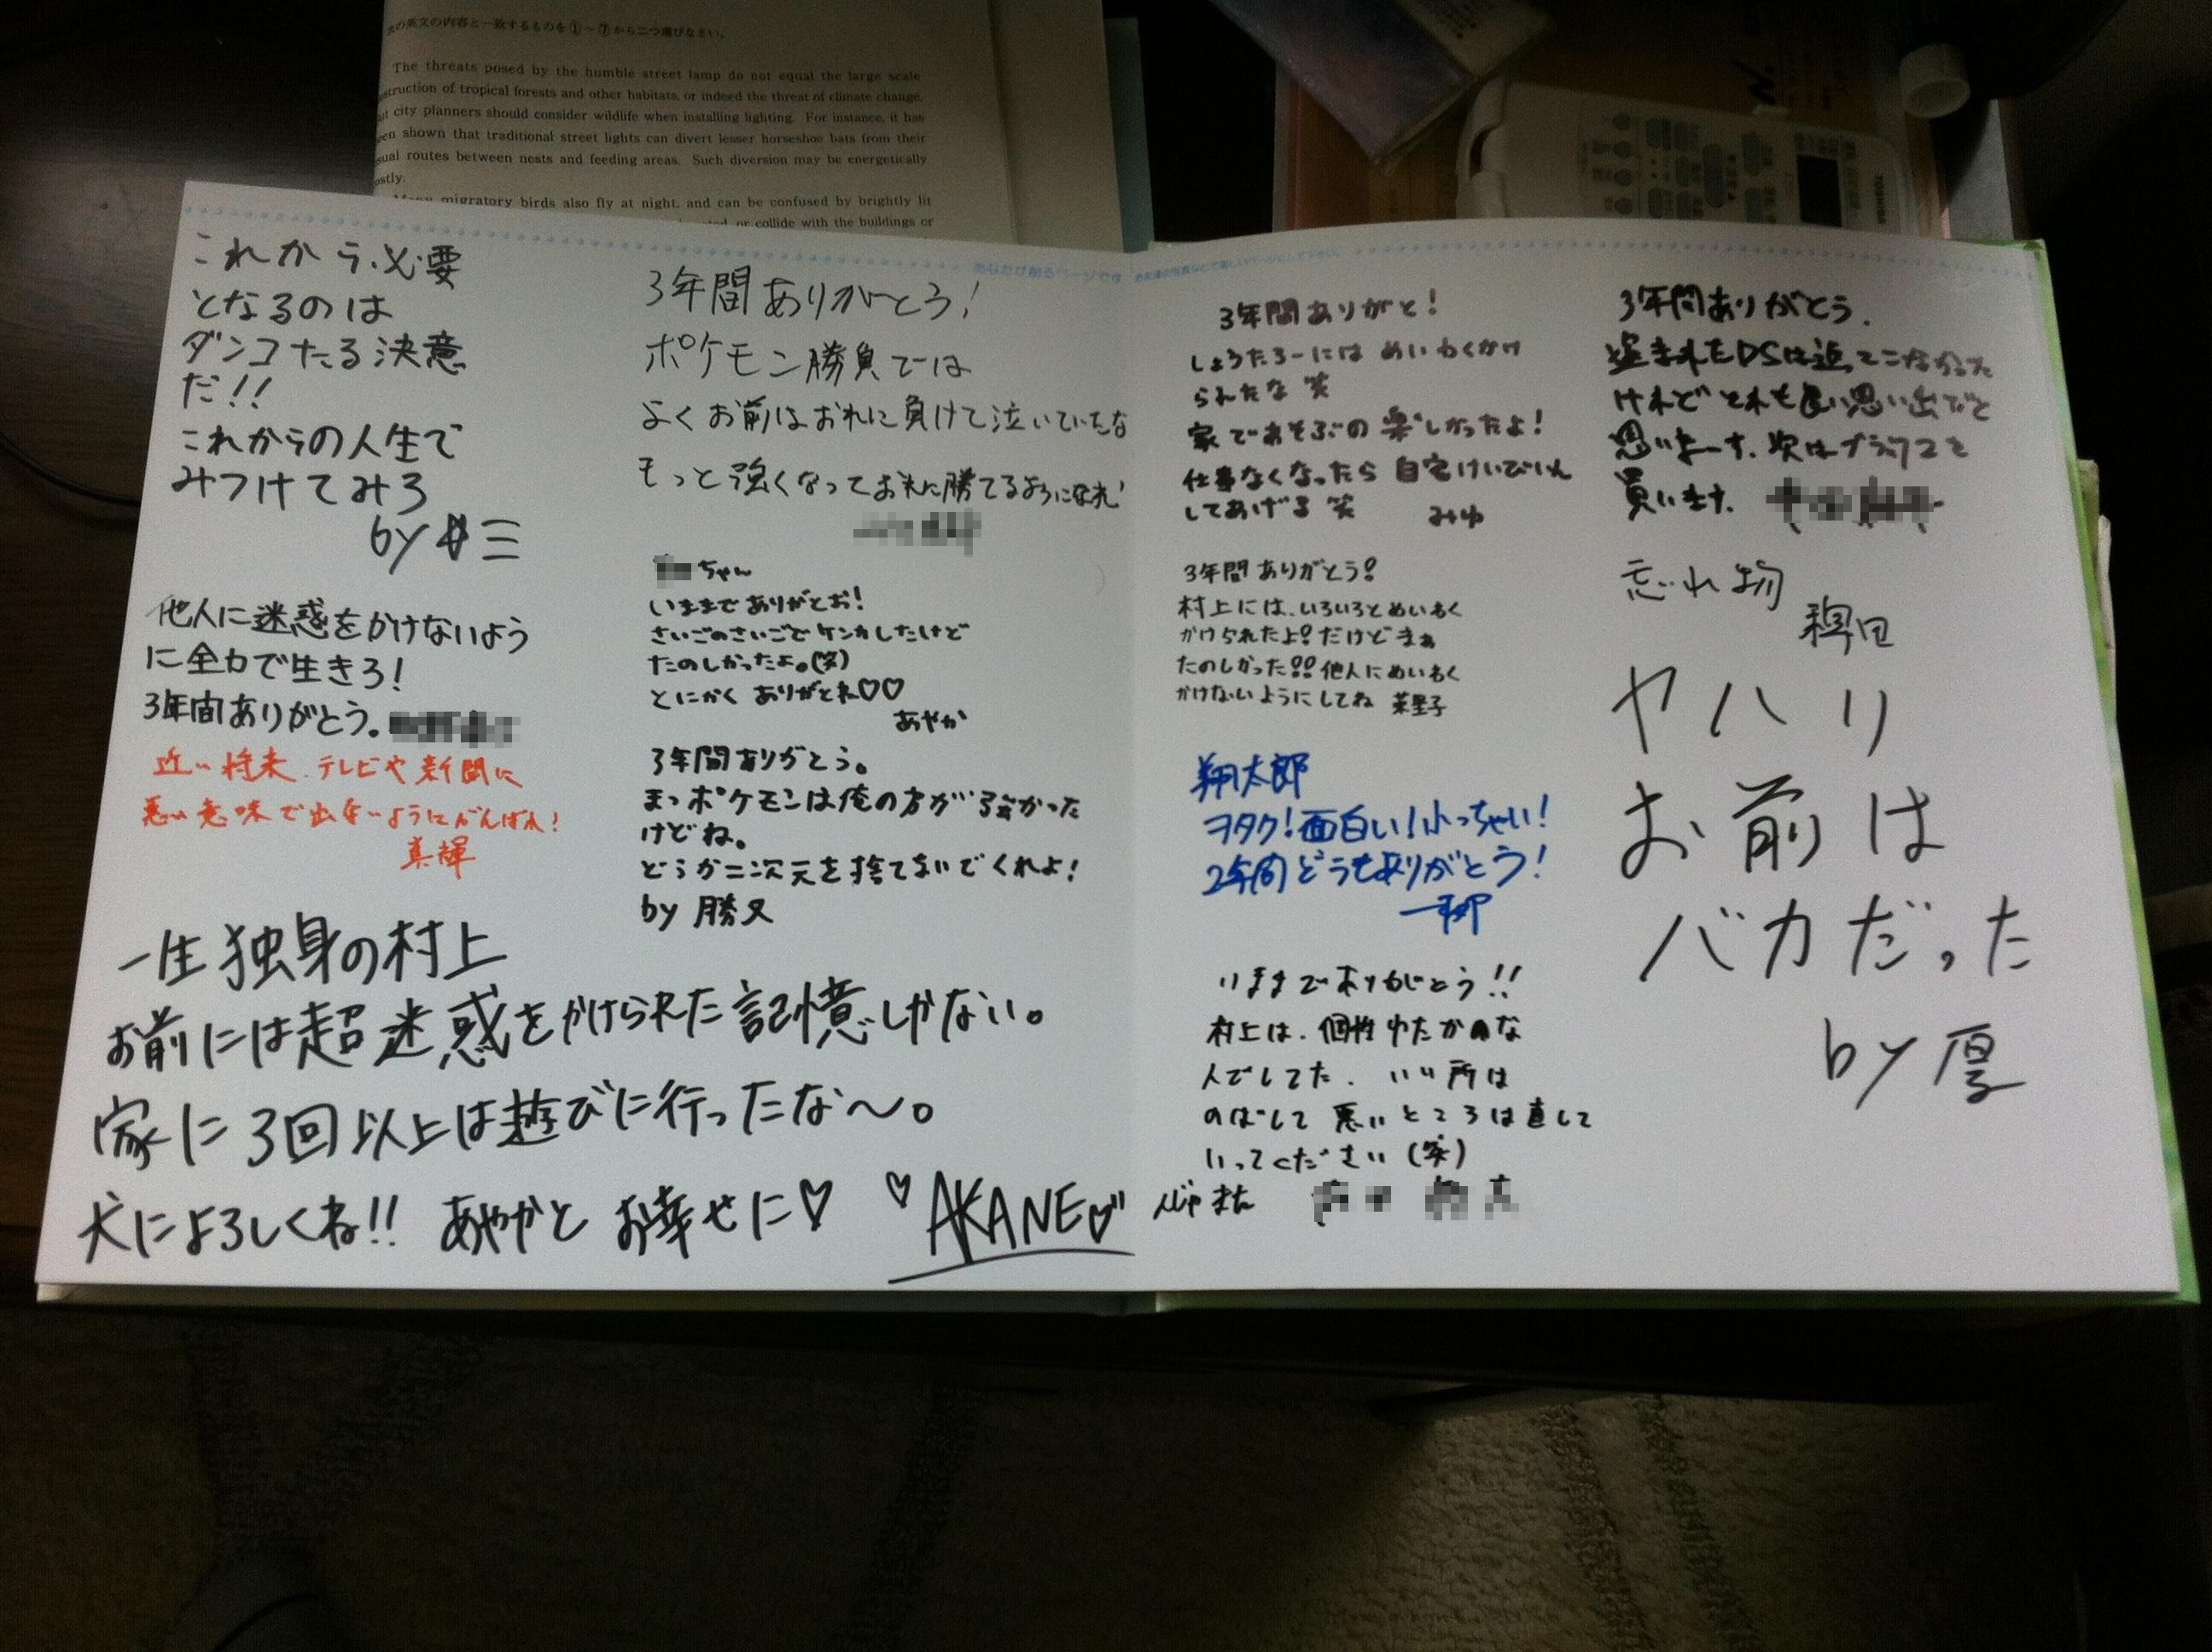 次の英文の内容と一致するものを①〜⑦から二つ選びなさい。
The threats posed by the humble street lamp do not equal the large scale
struction of tropical forests and other habitats, or indeed the threat of climate change,
city planners should consider wildlife when installing lighting. For instance, it has
een shown that traditional street lights can divert lesser horseshoe bats from their
sual routes between nests and feeding areas. Such diversion may be energetically
ostly.
migratory birds also fly at night, and can be confused by brightly lit
or collide with the buildings or
TOSHIBA
これから必要
となるのは
ダンコたる決意
だ!!
これからの人生で
みつけてみろ
by
他人に迷惑をかけないよう
に全力で生きろ!
3年間ありがとう。
近い将来、テレビや新聞に
悪い意味で出ないようにがんばれ!
真輝
3年間ありがとう!
ポケモン勝負では
よくお前はおれに負けて泣いていたな
もっと強くなっておれに勝てるようになれ!
ちゃん
いままでありがとお!
さいごのさいごでケンカしたけど
たのしかったよ。(笑)
とにかく ありがとね♡♡
あやか
3年間ありがとう。
まっポケモンは俺の方が強かった
けどね。
どうか二次元を捨てないでくれよ!
by 勝又
一生独身の村上
お前には超迷惑をかけられた記憶しかない。
家に3回以上は遊びに行ったな〜。
犬によろしくね!! あやかと お幸せに♡ ♡AKANE♡"
3年間ありがと!
しょうたろーには めいわくかけ
られたな 笑
家であそぶの 楽しかったよ!
仕事なくなったら 自宅けいびいん
してあげる 笑 みゆ
3年間ありがとう!
村上には、いろいろとめいわく
かけられたよ!だけどまぁ
たのしかった!!他人にめいわく
かけないようにしてね 菜里子
翔太郎
ヲタク!面白い!小っちゃい!
2年間どうもありがとう!
いままでありがとう!!
村上は、個性ゆたかのな
人でしてた. いい所は
のばして 悪いところは直して
いってください(笑)
んじゃまた
3年間ありがとう.
盗まれたDSは返ってこなかった
けれど それも良い思い出だと
思いまーす. 次はブラック2を
買います.
忘れ物
ヤハリ
お前は
バカだった
by 厚